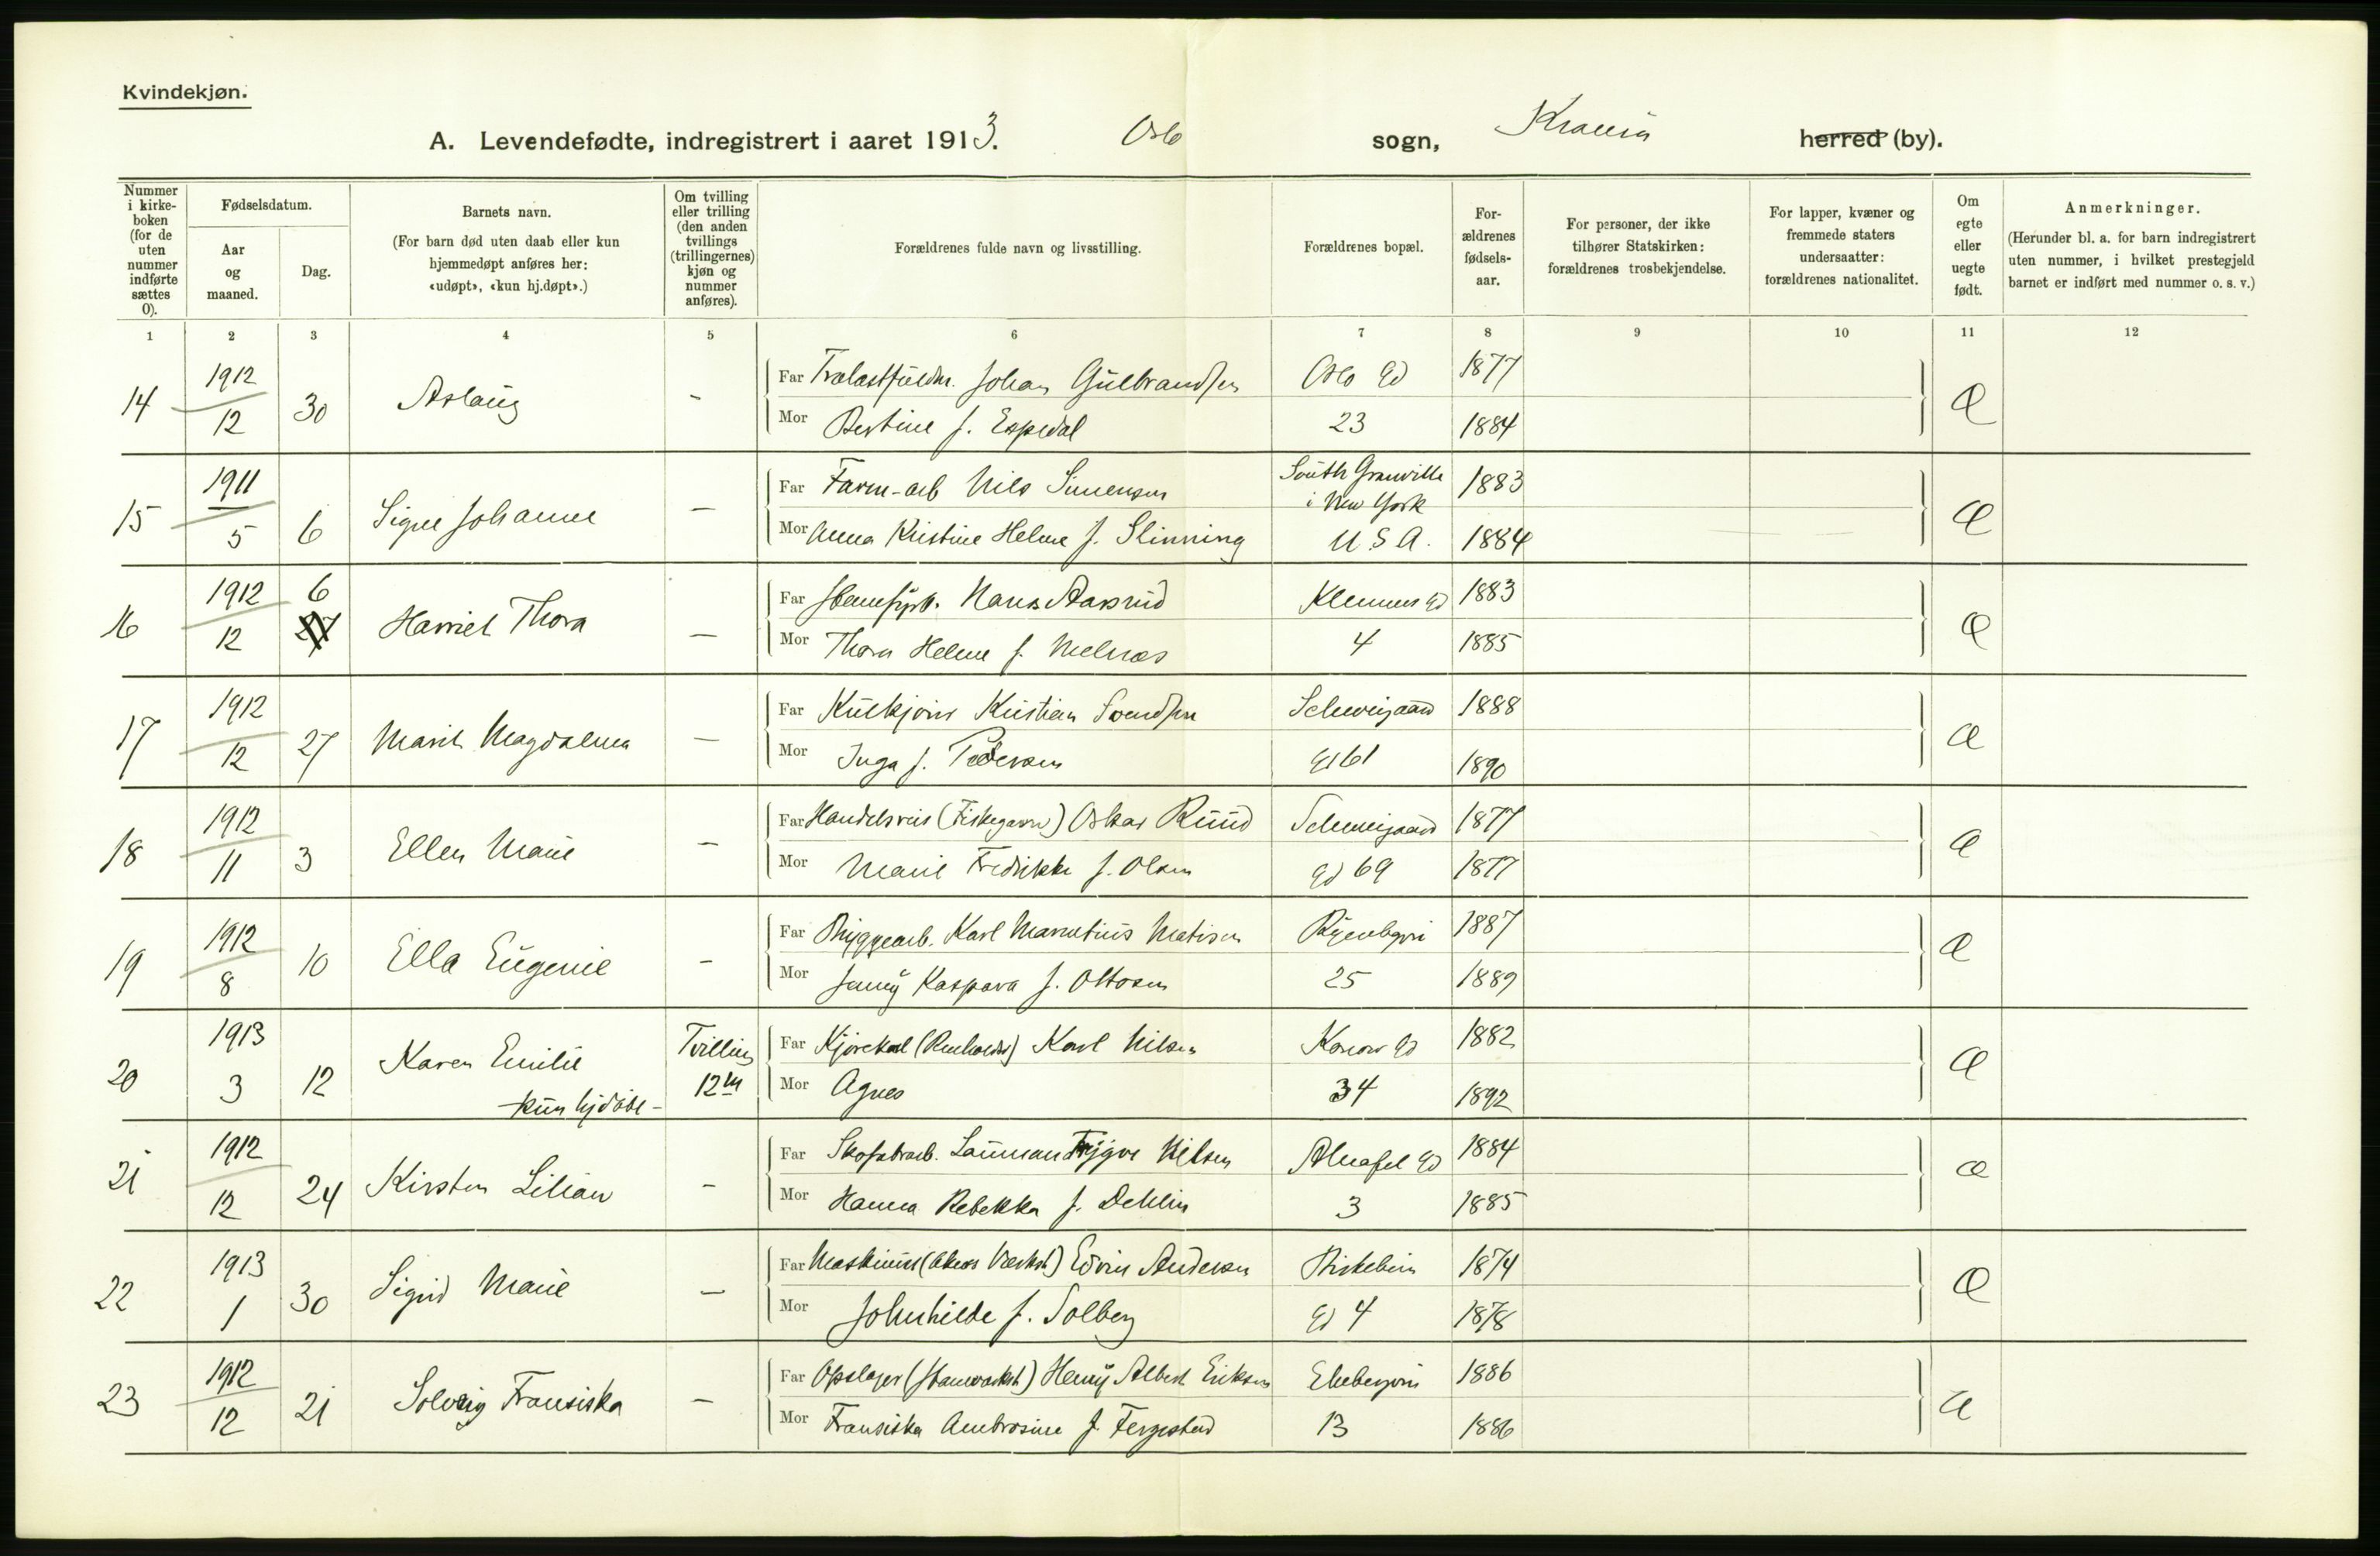 Kvindekjøn.
A. Levendefødte, indregistrert i aaret 1913. Oslo sogn, Krania herred (by).
Nummer i kirke-boken (for de uten nummer indførte sættes 0).
Fødselsdatum.
Aar og maaned.
Dag.
Barnets navn.
(For barn død uten daab eller kun hjemmedøpt anføres her: «udøpt», «kun hj.døpt».)
Om tvilling eller trilling (den anden tvillings (trillingernes) kjøn og nummer anføres).
Forældrenes fulde navn og livsstilling.
Forældrenes bopæl.
For-ældrenes fødsels-aar.
For personer, der ikke tilhører Statskirken: forældrenes trosbekjendelse.
For lapper, kvæner og fremmede staters undersaatter: forældrenes nationalitet.
Om egte eller uegte født.
Anmerkninger.
(Herunder bl. a. for barn indregistrert uten nummer, i hvilket prestegjeld barnet er indført med nummer o. s. v.)
1 2 3 4 5 6 7 8 9 10 11 12
14 1912 12 30 Aslaug -
Far Johan Gulbrandsen Oslo gd 1877 Æ
Mor Bertine f. Espedal 23 1884
15 1911 5 6 Signe Johanne —
Far Farm-arb Nils Simensen South Granville i New York 1883 Æ
Mor Anna Kristine Helene f. Slinning U S A. 1884
16 1912 12 6 27 Harriet Thora —
Far Hans Aasrud Klemens gd 1883 Æ
Mor Thora Helene f. Melnæs 4 1885
17 1912 12 27 Marit Magdalena —
Far Kulkjører Kristian Svendsen Schweigaard 1888 Æ
Mor Inga f. Pedersen gd 61 1890
18 1912 11 3 Ellen Marie —
Far Handelsreis (Fiskegarn) Oskar Ruud Schweigaard 1877 Æ
Mor Marie Fredrikke f. Olsen gd 69 1877
19 1912 8 10 Ella Eugenie -
Far Bryggearb. Karl Matisen Ryenbgvei 1887 Æ
Mor Jenny Kaspara f. Ottosen 25 1889
20 1913 3 12 Karen Emilie kun hjdøbt - Tvilling 12 m
Far Kjørekarl (Renholds) Karl Nilsen Konow gd 1882 Æ
Mor Agnes 34 1892
21 1912 12 24 Kirsten Lilian -
Far Skofabrarb. Trygve Nilsen gd 1884 Æ
Mor Hanna Rebekka f. Dehlin 3 1885
22 1913 1 30 Sigrid Marie —
Far Maskinist (Akers Værkst) Edvin Andersen Birkebein 1874 Æ
Mor Johnhilde f. Solberg gd 4 1878
23 1912 12 21 Solveig Fransiska —
Far Opslager (Jernværkst) Henry Albert Eriksen Ekebergvei 1886 Æ
Mor Fransiska Ambrosine f. Fergestad 13 1886